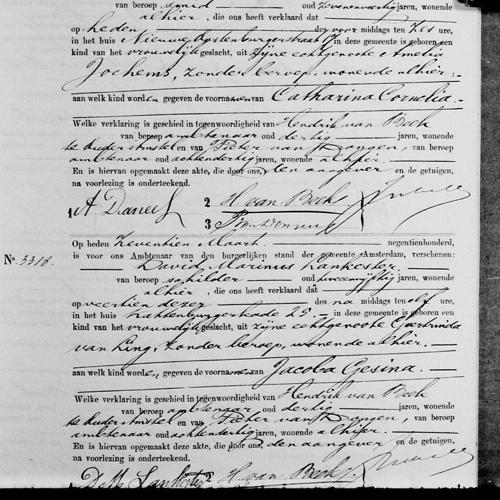 van beroep smid oud zevenenveertig jaren, wonende
alhier, die ons heeft verklaard dat
op heden des voor middags ten zes ure,
in het huis Nieuwe Oostenburgerstraat in deze gemeente is geboren een
kind van het vrouwelijk geslacht, uit zijne echtgenoote Amelia
Jochems, zonder beroep, wonende alhier.
aan welk kind worden gegeven de voornamen van Catharina Cornelia.
Welke verklaring is geschied in tegenwoordigheid van Hendrik van Beek
van beroep ambtenaar oud dertig jaren, wonende
te Ouder Amstel en van Pieter van Dongen, van beroep
ambtenaar oud achtendertig jaren, wonende alhier.
En is hiervan opgemaakt deze akte, die door ons, den aangever en de getuigen,
na voorlezing is onderteekend.
1 A Danee
2 H van Beek
3
No. 3318.
Op heden zeventien Maart negentienhonderd,
is voor ons Ambtenaar van den burgerlijken stand der gemeente Amsterdam, verschenen:
David Marinus Lankester
van beroep schilder oud jaren, wonende
alhier, die ons heeft verklaard dat
op veertien dezer des na middags ten elf ure,
in het huis Kattenburgerkade 25 in deze gemeente is geboren een
kind van het vrouwelijk geslacht, uit zijne echtgenoote Geertruida
van Ling, zonder beroep, wonende alhier.
aan welk kind worden gegeven de voornamen van Jacoba Gesina.
Welke verklaring is geschied in tegenwoordigheid van Hendrik van Beek
van beroep ambtenaar oud dertig jaren, wonende
te Ouder Amstel en van Pieter van Dongen, van beroep
ambtenaar oud achtendertig jaren, wonende alhier.
En is hiervan opgemaakt deze akte, die door ons, den aangever en de getuigen,
na voorlezing is onderteekend.
D M Lankester H van Beek